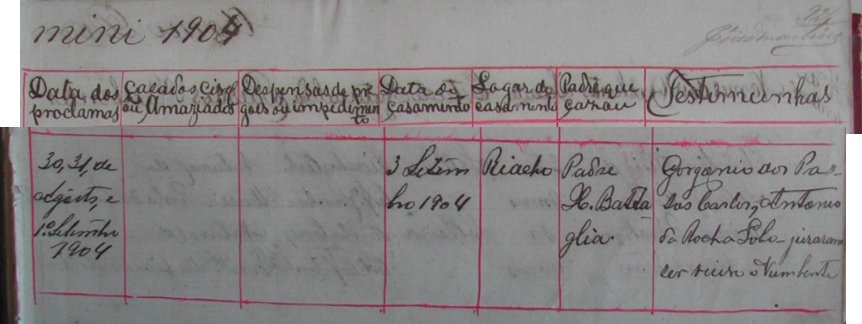 mini 1904
Data dos
proclamas
Casados Civil
ou Amaziados
Despensas de pre
gões ou impedimen
to
Data do
casamento
Logar do
casamento
Padre que
casou
Testimunhas
30, 31, de
Agôsto, e
1º Setembro
1904
3 Setem
bro 1904
Riacho
Padre
X. Batta
glia.
Gorgonio dos Pa-
ssos Carlos, Antonio
da Rocha Lola juraram
ser viuvo o Numbente